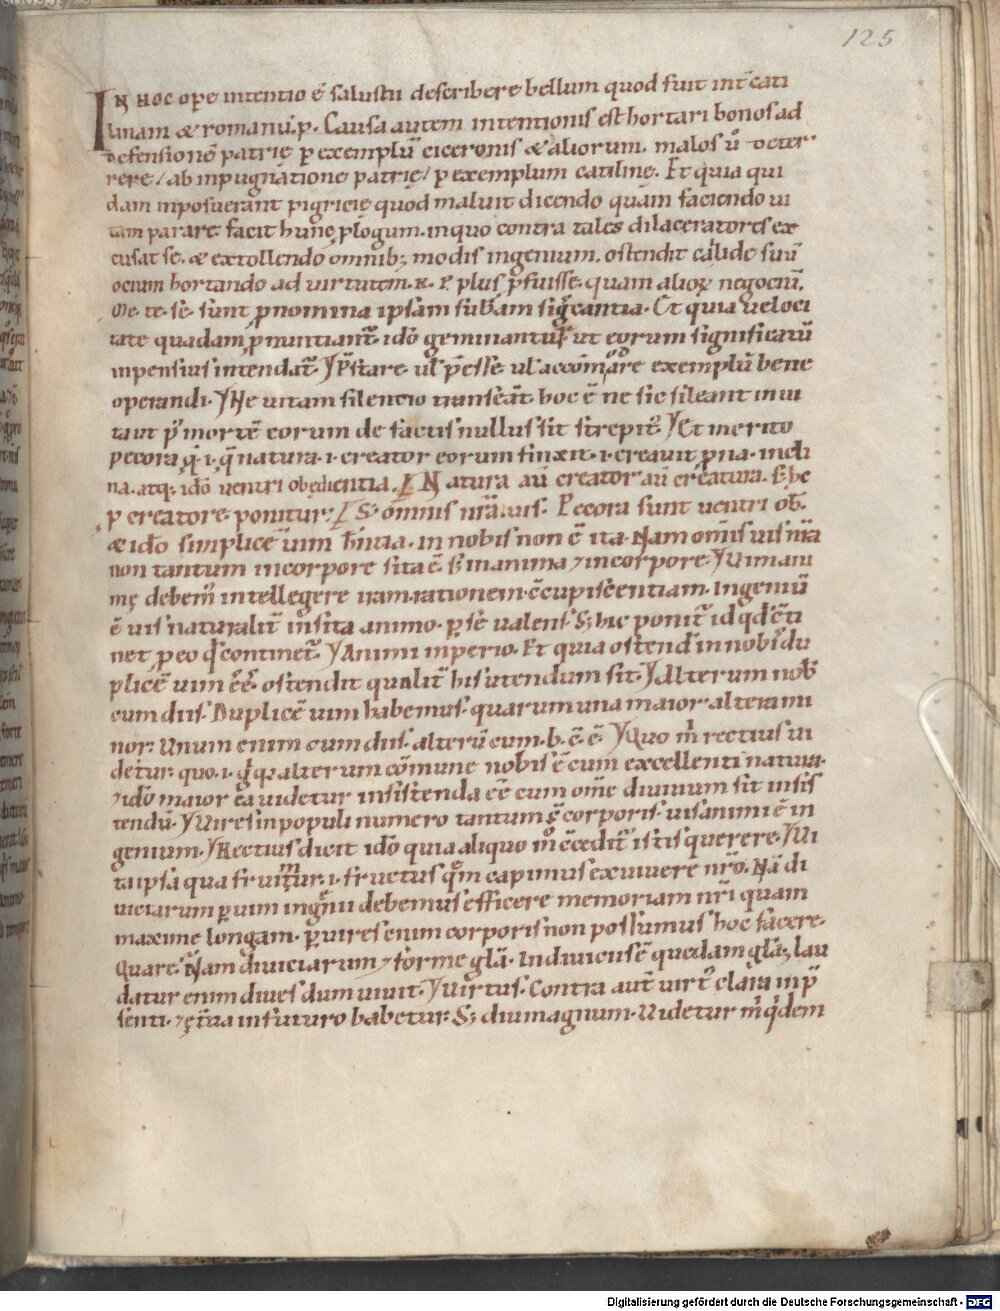 125
IN HOC ope intentio ē salustii describere bellum quod fuit int̄ cati
linam & romanū.p. Causa autem intentionis est hortari bonos ad
defensionē patrię p exemplū ciceronis & aliorum. malos ū deter
rere / ab inpugnatione patrię / p exemplum catilinę. Et quia qui
dam inposuerant pigricię quod maluit dicendo quam faciendo ui
tam parare facit hunc plogum. in quo contra tales dilaceratores ex
cusat se. & extollendo omnib; modis ingenium. ostendit calide suū
ocium hortando ad uirtutem. R. P. plus pfuisse. quam alioꝝ negociū.
Me. te. se. sunt pnomina ipsam subām significantia. Et quia ueloci
tate quadam pnuntiant̄. idō geminantur ut eorum significatū
inpensius intendat̄. Pstare. ul pēsse. ul accōmodare exemplū bene
operandi. Ne uitam silentio transeāt. hoc ē ne sic sileant in ui
ta ut p mortē eorum de factis nullus sit strepit᷒. Et merito
pecora .i. natura .i. creator eorum finxit .i. creauit prona. incli
na. atq; idō uentri obedientia. NAtura aū creator aū creatura. s; hc
p creatore ponitur. S; omnis nrā uis. Pecora sunt uentri ob.
& idō simplicē uim hntia. in nobis non ē ita. Nam omīs uis nrā
non tantum in corpore sita ē s; in anima & in corpore. Vim ani
mę debem᷒ intellegere iram. rationem. cōcupiscentiam. Ingeniū
ē uis naturalit̄ insita animo. p se ualens. S; hic ponit̄ id qd cōti
net p eo qd continet̄. Animi inperio. Et quia ostend in nobis du
plicē uim ēē. ostendit qualit̄ his utendum sit. Alterum nob
cum diis. Duplicē uim habemus. quarum una maior. altera mi
nor. Unum enim cum diis. alterū cum. b. c. ē. Quo m rectius ui
detur. quo .i. alterum cōmune nobis ē cum excellenti natura.
idō maior ea uidetur insistenda ēē cum omē diuinum sit insis
tendū. Vires in populi numero tantum & corporis. uis animi ē in
genium. Rectius dicit idō quia aliquo m cēcedit istis querere. Vi
ta ipsa qua fruimur .i. fructus qm capimus ex uiuere nrō. Nā di
uiciarum p uim ingenii debemus efficere memoriam nrī quam
maxime longam. p uires enim corporis non possumus hoc facere.
Quare. Nam diuiciarum & forme glā. In diuiciis ē quedam glā; lau
datur enim diues dum uiuit. Virtus. Contra aut uirt᷒ clara in p
senti. & ęt̄na in futuro habetur. S; diu magnum. Videtur m qdem
Digitalisierung gefördert durch die Deutsche Forschungsgemeinschaft - DFG